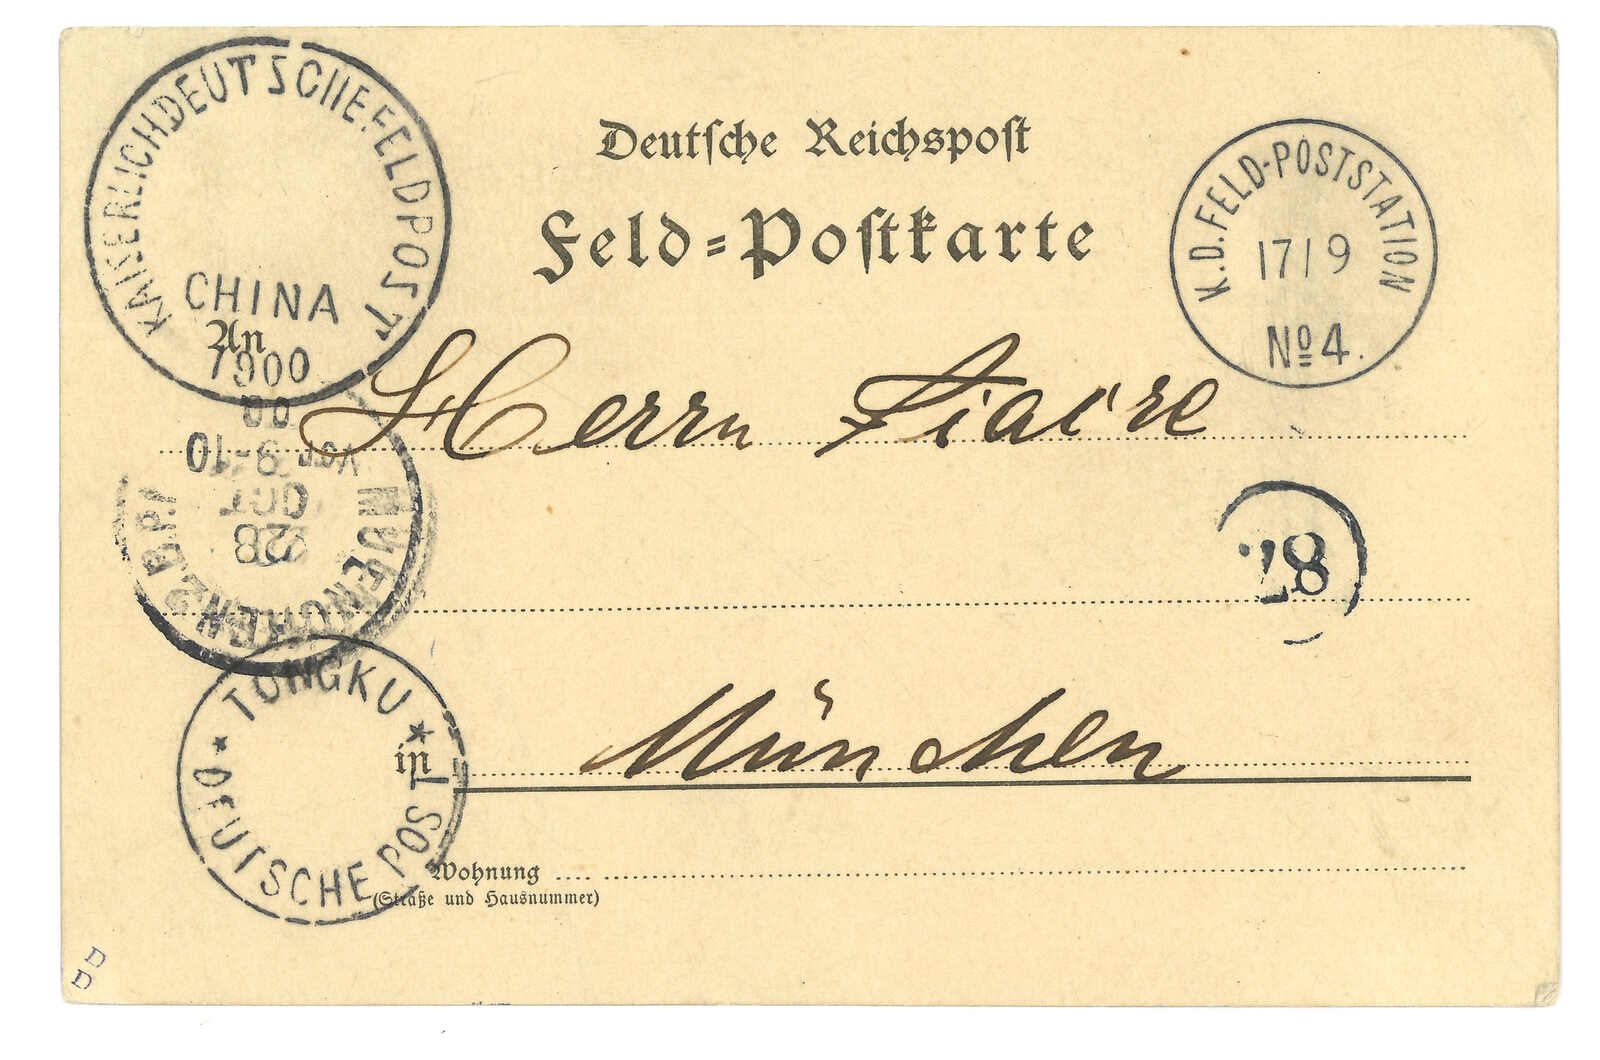 KAISERLICH DEUTSCHE FELDPOST
CHINA
1900
Deutsche Reichspost
Feld=Postkarte
K.D. FELD-POSTSTATION
17/9
No 4.
An
Herrn
MUENCHEN 2 B.P.
28
OCT
Vor 9-10
00
87
TONGKU
DEUTSCHE POST
in
München
Wohnung
(Straße und Hausnummer)
D
D